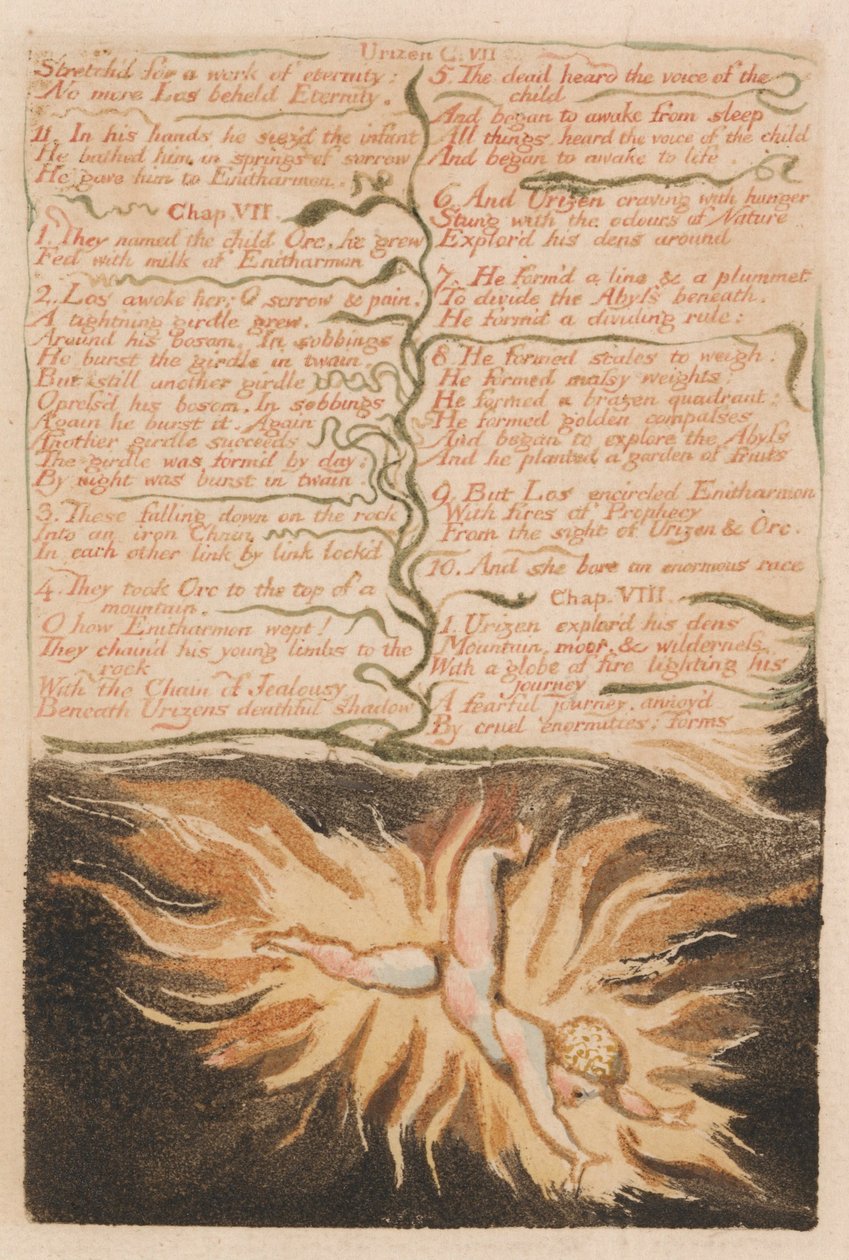 Urizen C. VII
Stretch'd for a work of eternity:
No more Los beheld Eternity.
11. In his hands he siez'd the infant
He bathed him in springs of sorrow
He gave him to Enitharmon.
Chap. VII.
1. They named the child Orc, he grew
Fed with milk of Enitharmon
2. Los awoke her; O sorrow & pain!
A tightning girdle grew,
Around his bosom. In sobbings
He burst the girdle in twain,
But still another girdle
Opressd his bosom, In sobbings
Again he burst it. Again
Another girdle succeeds
The girdle was form'd by day;
By night was burst in twain.
3. These falling down on the rock
Into an iron Chain
In each other link by link lock'd
4. They took Orc to the top of a
mountain.
O how Enitharmon wept!
They chain'd his young limbs to the
rock
With the Chain of Jealousy
Beneath Urizens deathful shadow
5. The dead heard the voice of the
child
And began to awake from sleep
All things. heard the voice of the child
And began to awake to life.
6. And Urizen craving with hunger
Stung with the odours of Nature
Explor'd his dens around
7. He form'd a line & a plummet
To divide the Abyss beneath.
He form'd a dividing rule:
8. He formed scales to weigh;
He formed massy weights;
He formed a brazen quadrant;
He formed golden compasses
And began to explore the Abyss
And he planted a garden of fruits
9. But Los encircled Enitharmon
With fires of Prophecy
From the sight of Urizen & Orc.
10. And she bore an enormous race
Chap. VIII.
1. Urizen explor'd his dens
Mountain, moor, & wilderness,
With a globe of fire lighting his
journey
A fearful journey, annoy'd
By cruel enormities: forms